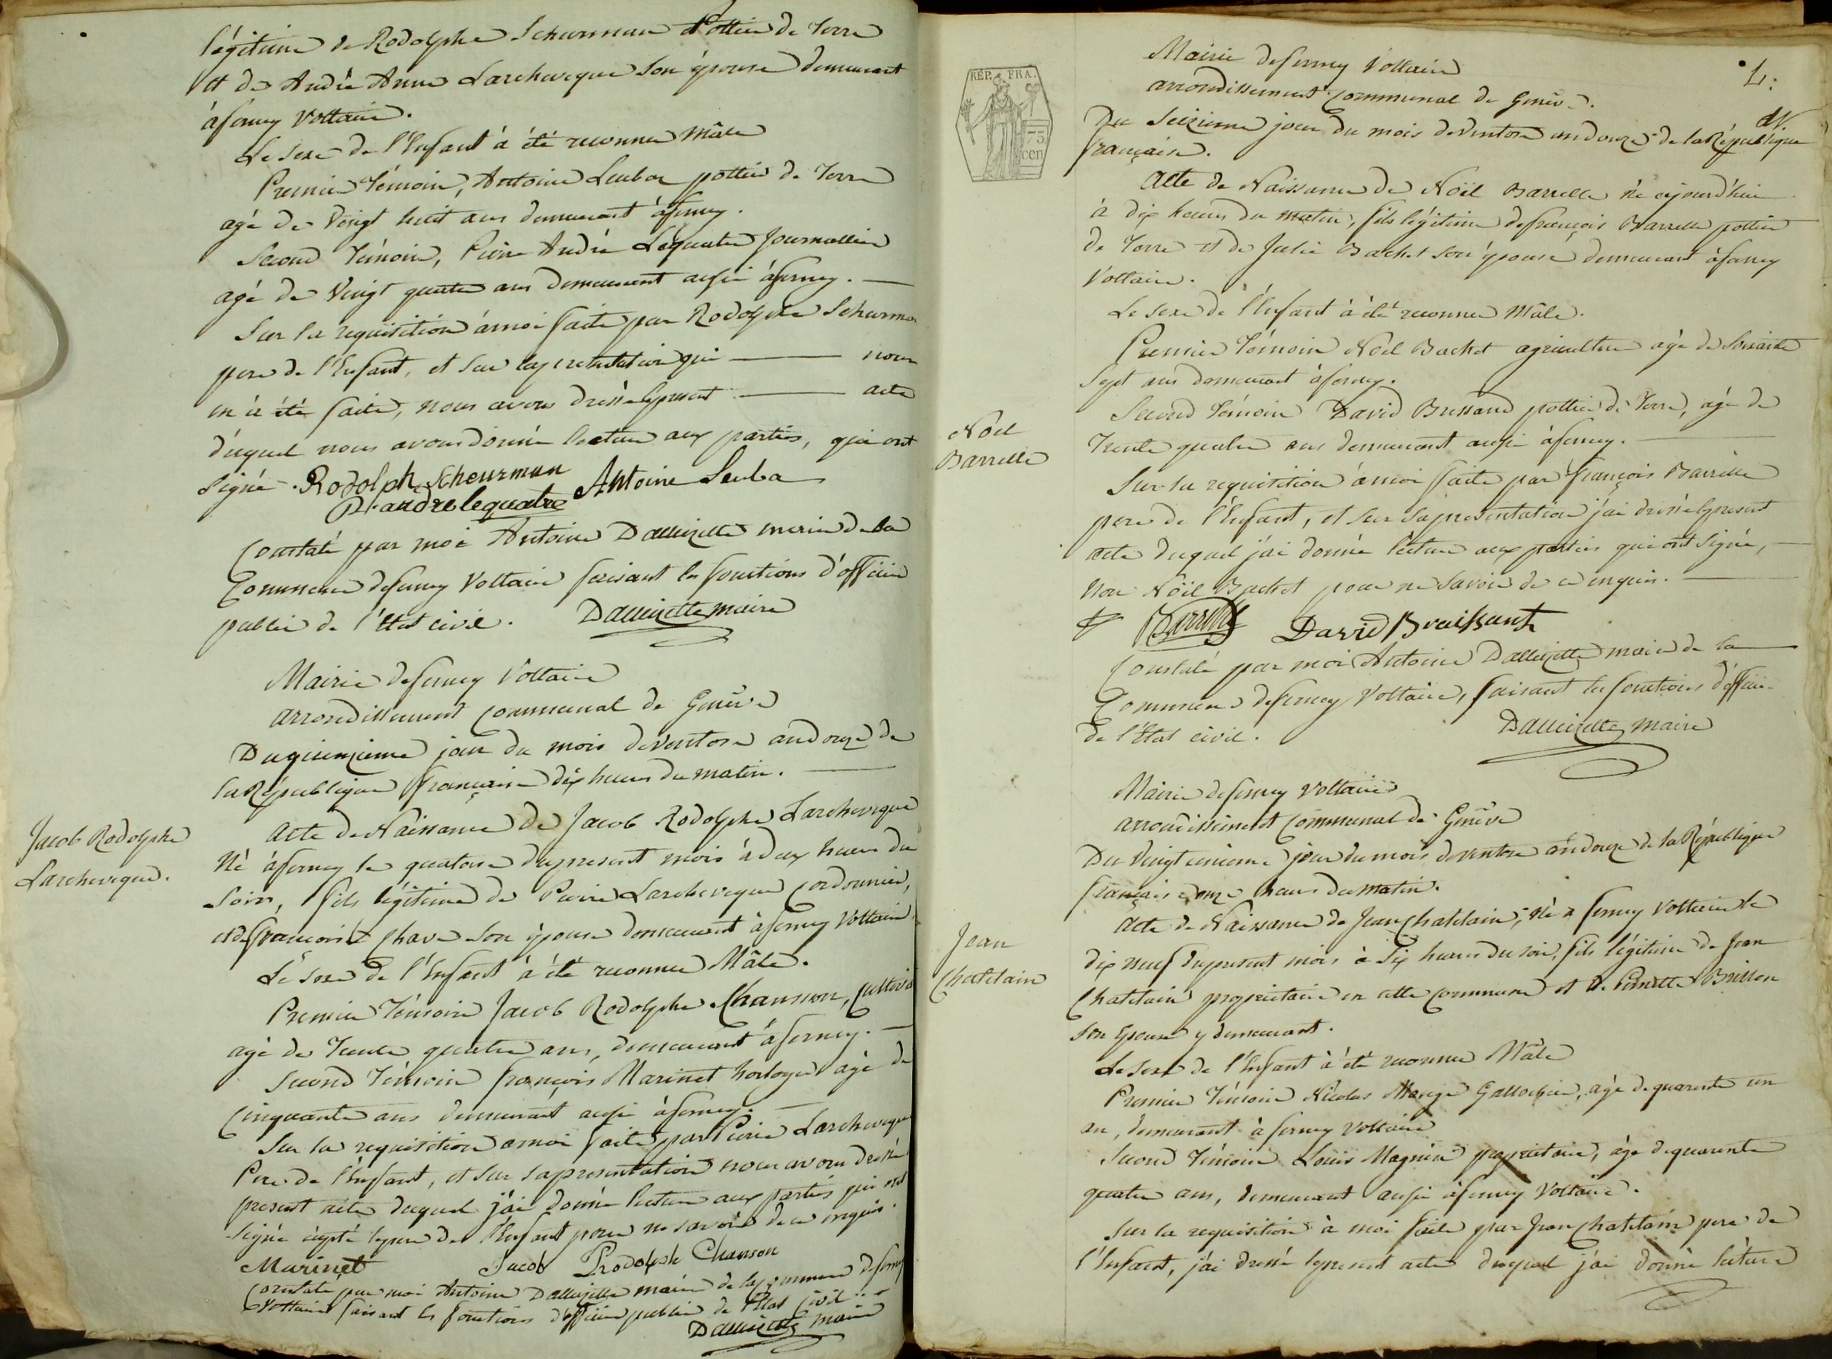 légitime de Rodolphe Schurman Pottier de Terre
et de André Anne Larcheveque son épouse demeurant
à ferney Voltaire.
Le sexe de l'Enfant à été reconnu Mâle
Premier Témoin, Antoine Leuba pottier de Terre
agé de Vingt huit ans demeurant à ferney.
Second Témoin, Pierre André Lequatre Journallier
agé de Vingt quatre ans demeurant aussi à ferney.
Sur la requisition à moi faite par Rodolphe Schurman
pere de l'Enfant, et sur la presentation qui nous
en à été faite, nous avons dressé le present acte
duquel nous avons donné lecture aux parties, qui ont
signé. Rodolph Scheurman Antoine Leuba
P. andre lequatre
Constaté par moi Antoine Dallizette maire de la
Commune de ferney Voltaire faisant les fonctions d'officier
public de l'Etat civil. Dallizette maire
Mairie de ferney Voltaire
arrondissement Communal de Genève
Du quinzieme jour du mois de Ventose an douze de
la République française dix heures du matin.
Jacob Rodolphe
Larcheveque.
Acte de Naissance de Jacob Rodolphe Larcheveque
Né à ferney le quatorze du present mois à deux heures du
Soir, fils légitime de Pierre Larcheveque Cordonnier,
et de françoise Chave son épouse demeurant à ferney Voltaire
Le sexe de l'Enfant à été reconnu Mâle.
Premier Témoin Jacob Rodolphe Chanson, Cultivat
agé de Trente quatre ans, demeurant à ferney.
Second Témoin françois Marinet horloger agé de
Cinquante ans demeurant aussi à ferney.
Sur la requisition à moi faite par Pierre Larcheveque
Pere de l'Enfant, et sur sa presentation nous avons dressé
present acte duquel j'ai donné lecture aux parties qui ont
signé excepté le pere de l'Enfant pour ne savoir de ce enquis.
Marinet Jacob Rodolph Chanson
Constaté par moi Antoine Dallizette maire de la Commune de ferney
Voltaire faisant les fonctions d'officier public de l'Etat Civil
Dallizette maire
RÉP. FRA.
75
cen
Mairie de ferney Voltaire
arrondissement Communal de Genève.
Du Seizieme jour du mois de Ventose an douze de la République
française.
Noël
Barrelle
Acte de Naissance de Noël Barrelle né cejourd'hui
à dix heures du matin, fils légitime de françois Barrelle pottier
de Terre et de Julie Bachet son épouse demeurant à ferney
Voltaire.
Le sexe de l'Enfant à été reconnu Mâle.
Premier Témoin Noël Bachet agriculteur agé de Soixante
Sept ans demeurant à ferney.
Second Témoin David Bressand pottier de Terre, agé de
Trente quatre ans demeurant aussi à ferney.
Sur la requisition à moi faite par françois Barrelle
pere de l'Enfant, et sur sa presentation j'ai dressé le present
acte duquel j'ai donné lecture aux parties qui ont signé,
Non Noël Bachet pour ne savoir de ce enquis.
Barrelle David Braissant
Constaté par moi Antoine Dallizette maire de la
Commune de ferney Voltaire, faisant les fonctions d'officier
de l'Etat civil. Dallizette maire
Mairie de ferney Voltaire
arrondissement Communal de Genève
Du Vingt unieme jour du mois de Ventose an douze de la République
française onze heures du matin.
Jean
Chatelain
Acte de Naissance de Jean Chatelain, né à ferney Voltaire le
dix neuf du present mois à Six heures du soir, fils légitime de Jean
Chatelain propriétaire en cette Commune et de Pernette Brisson
son Epouse y demeurant.
Le sexe de l'Enfant à été reconnu Mâle
Premier Témoin Nicolas agé de quarante un
an, demeurant à ferney Voltaire
Second Témoin Louis Magnin propriétaire, agé de quarante
quatre ans, demeurant aussi à ferney Voltaire.
Sur la requisition à moi faite par Jean Chatelain pere de
l'Enfant, j'ai dressé le present acte duquel j'ai donné lecture